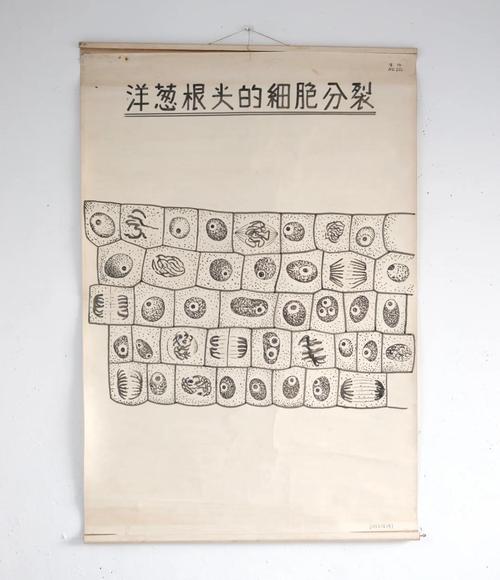 洋葱根尖的細胞分裂